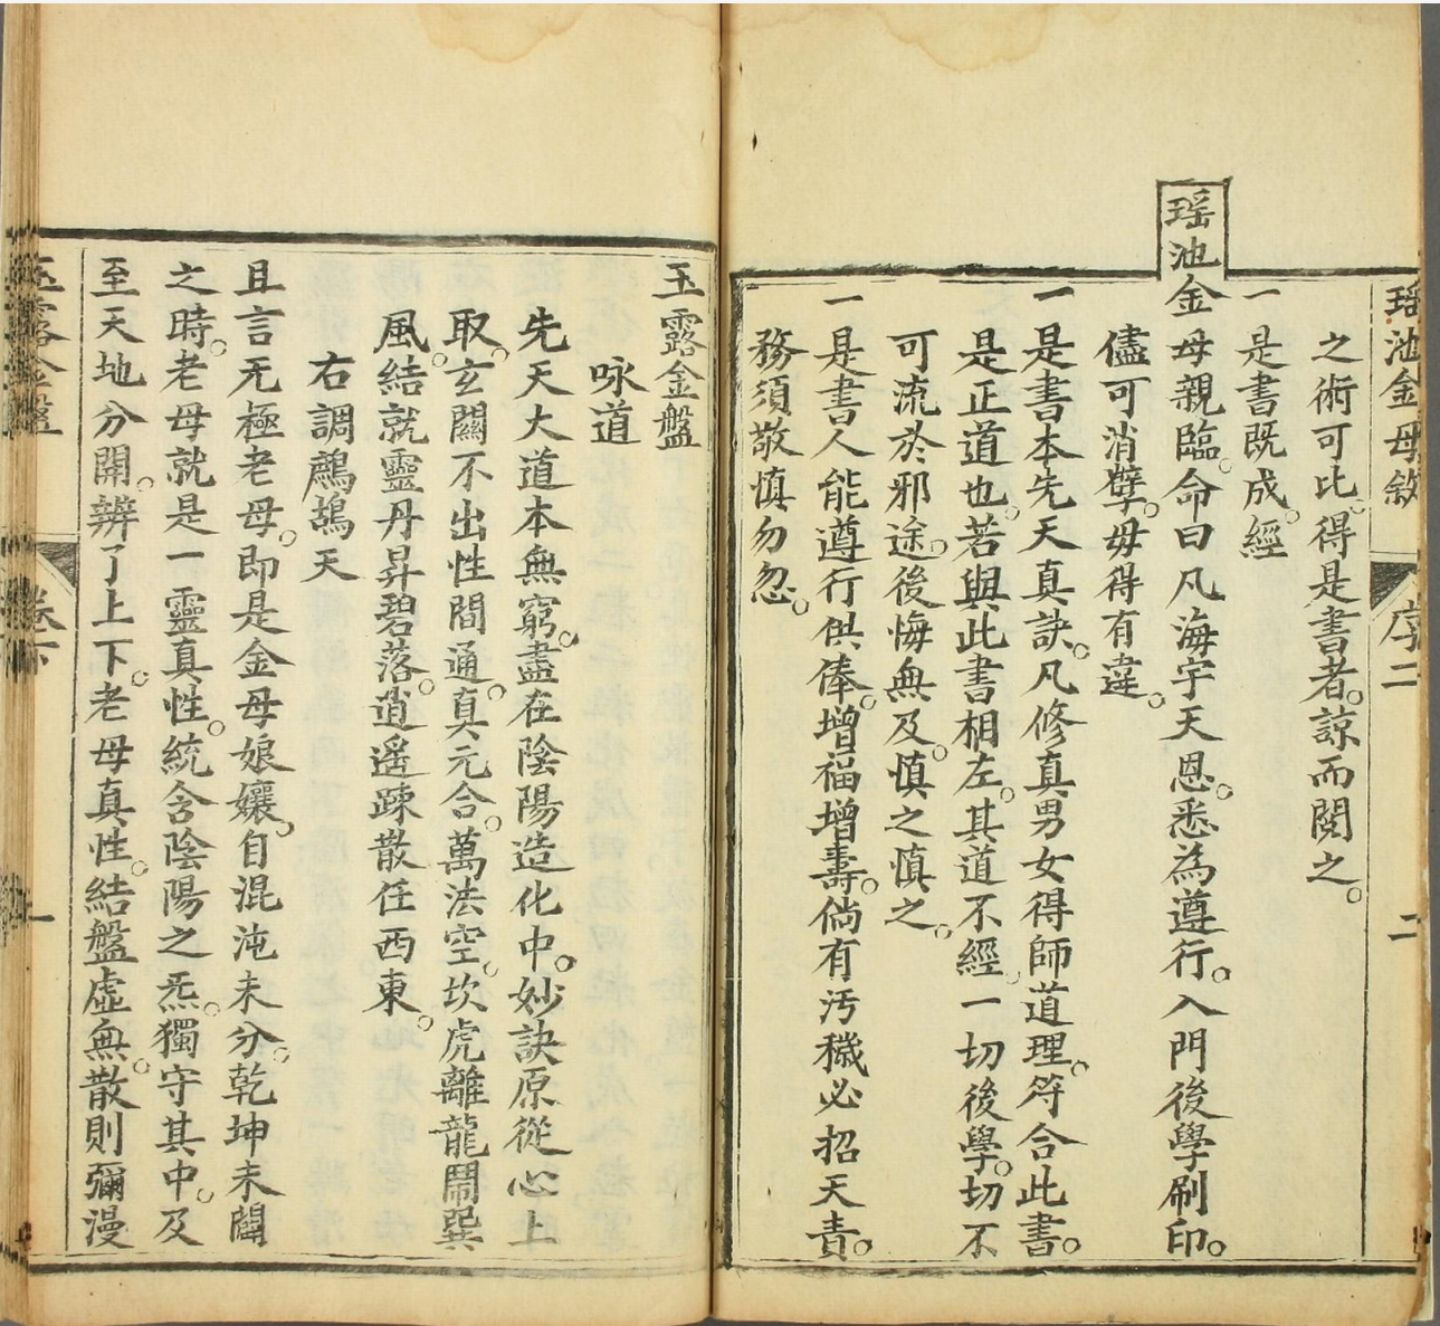 瑶池金母敘
序二
二
之術可比。得是書者。諒而閱之。
一是書既成。經
瑶池金母親臨。命曰凡海宇天恩。悉為遵行。入門後學刷印。
儘可消孽。毋得有違。
一是書本先天真訣。凡修真男女得師道理。符合此書。
是正道也。若與此書相左。其道不經。一切後學。切不
可流於邪途。後悔無及。慎之慎之。
一是書人能遵行供俸。增福增壽。倘有汚穢必招天責。
務須敬慎勿忽。
玉露金盤
咏道
先天大道本無窮。盡在陰陽造化中。妙訣原從心上
取。玄關不出性間通。真元合。萬法空。坎虎離龍鬧巽
風。結就靈丹昇碧落。逍遙踈散任西東。
右調鷓鴣天
且言无極老母。即是金母娘孃。自混沌未分。乾坤未闢
之時。老母就是一靈真性。統含陰陽之炁。獨守其中。及
至天地分開。辨了上下。老母真性。結盤虛無。散則彌漫
玉露金盤
卷下
一